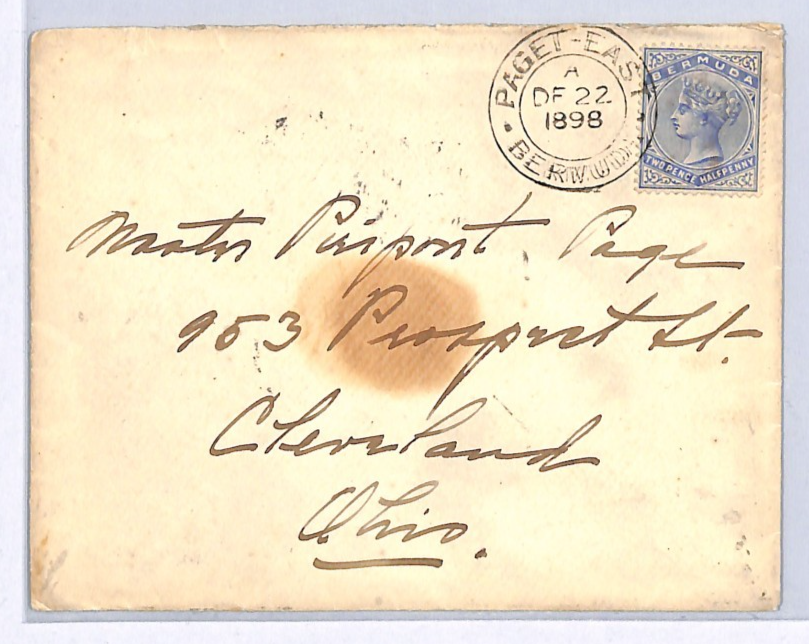 PAGET-EAST
A
DE 22
1898
BERMUDA
BERMUDA
TWO PENCE HALFPENNY
Master Pierpont Page
953 Prospect St.
Cleveland
Ohio.